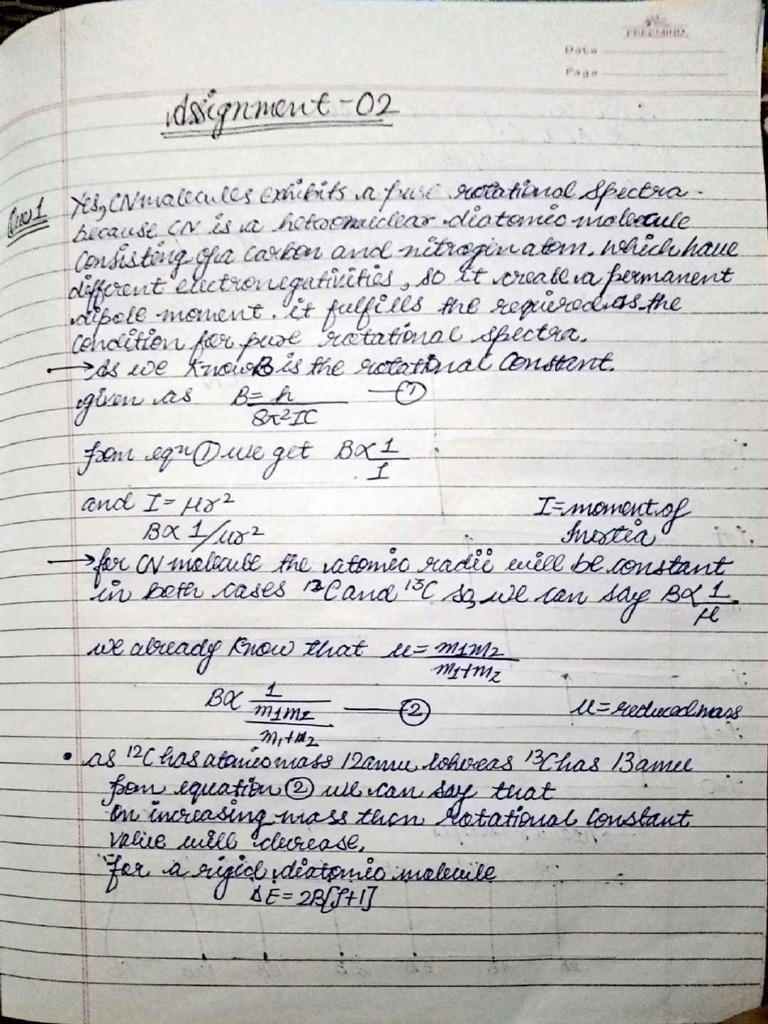 FREEMIND
Date
Page
Assignment-02
Ques1 Yes, CN malecules exhibits a pure rotational spectra.
because CN is a heteronuclear diatomic molecule
consisting of a carbon and nitrogen atom. which have
different electronegativities, so it create a permanent
dipole moment. it fulfills the required as the
condition for pure rotational spectra.
→ As we know B is the rotational constant.
given as B = h / 8π²IC — ①
from eqn ① we get B ∝ 1/I
and I = μr² I = moment of
B ∝ 1/μr² Inertia
→ for CN molecule the atomic radii will be constant
in both cases ¹²C and ¹³C so, we can say B ∝ 1/μ
we already know that μ = m1m2 / m1+m2
B ∝ 1 / (m1m2 / m1+m2) — ② μ = reduced mass
• as ¹²C has atomic mass 12amu whereas ¹³C has 13amu
from equation ② we can say that
on increasing mass then rotational constant
value will decrease,
for a rigid diatomic molecule
ΔE = 2B[J+1]